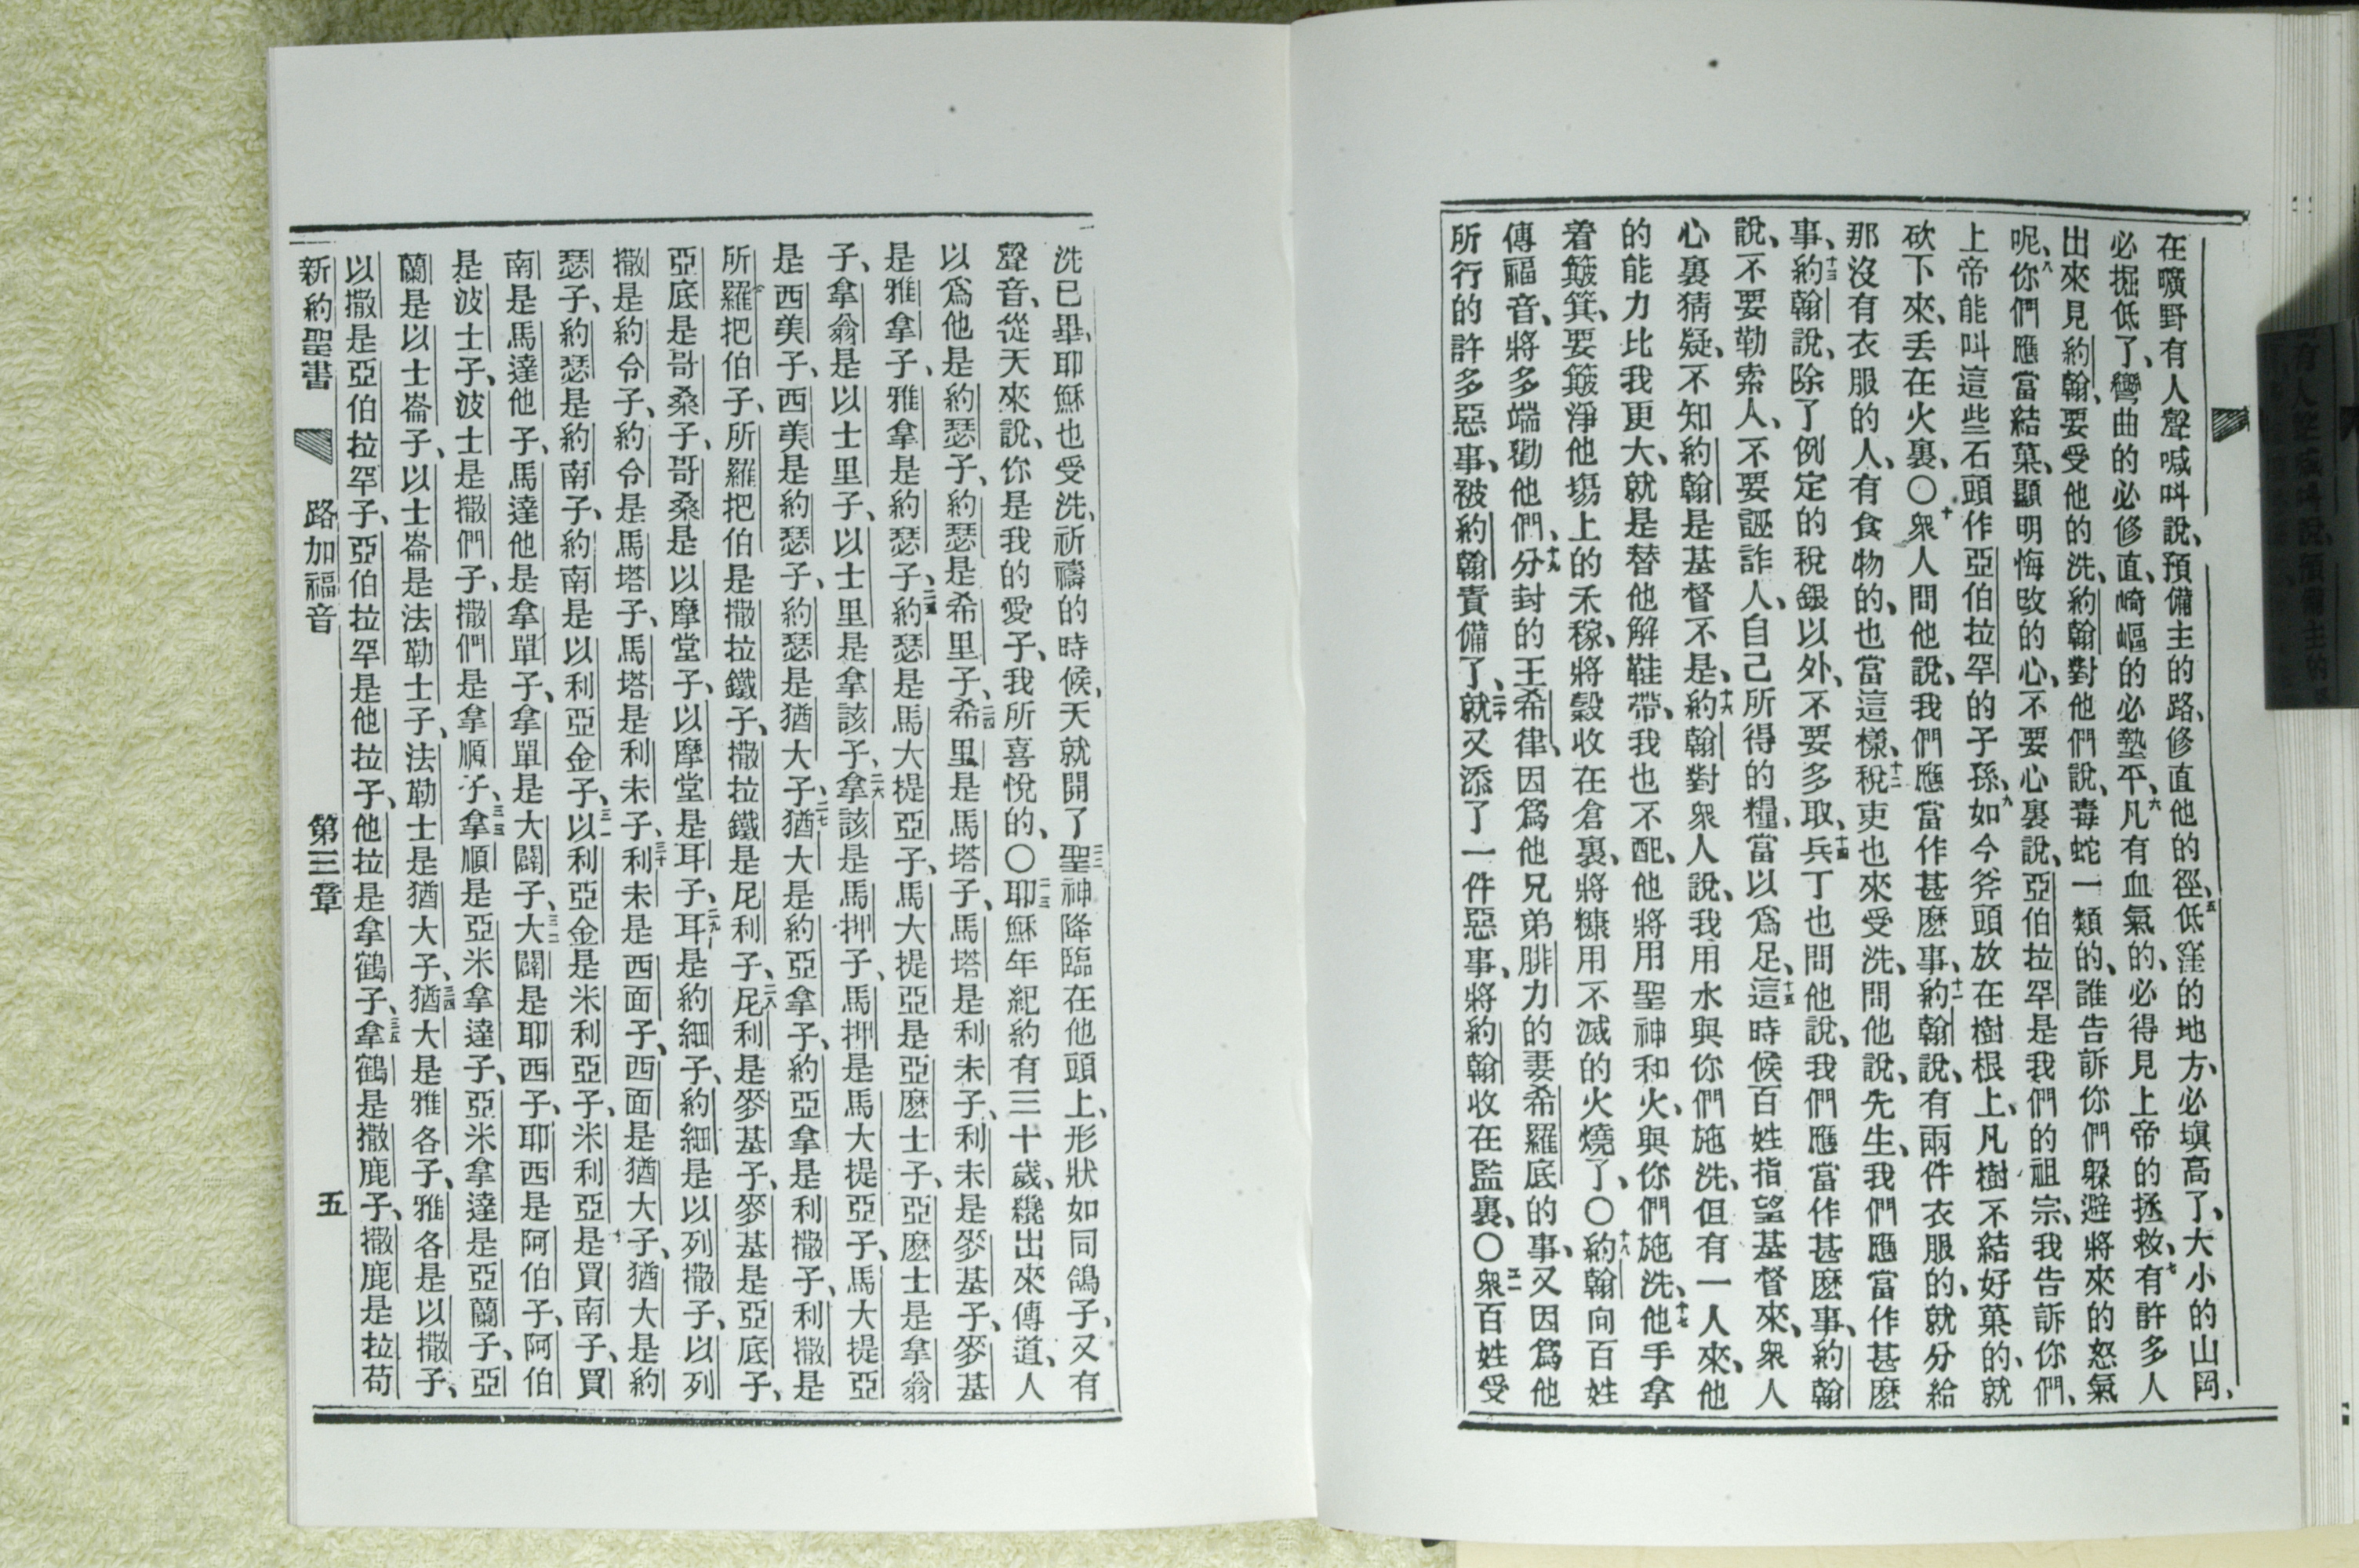 在曠野有人聲喊呌說、預備主的路、修直他的徑、五低窪的地方、必塡高了、大小的山岡、
必掘低了、彎曲的必修直、崎嶇的必墊平、六凡有血氣的、必得見上帝的拯救、七有許多人
出來見約翰、要受他的洗、約翰對他們說、毒蛇一類的、誰告訴你們躱避將來的怒氣
呢、八你們應當結菓、顯明悔改的心、不要心裏說、亞伯拉罕是我們的祖宗、我告訴你們、
上帝能叫這些石頭作亞伯拉罕的子孫、九如今斧頭放在樹根上、凡樹不結好菓的、就
砍下來、丟在火裏、〇十衆人問他說、我們應當作甚麽事、十一約翰說、有兩件衣服的、就分給
那沒有衣服的人、有食物的、也當這樣、十二稅吏也來受洗、問他說、先生、我們應當作甚麽
事、十三約翰說、除了例定的稅銀以外、不要多取、十四兵丁也問他說、我們應當作甚麽事、約翰
說、不要勒索人、不要誣詐人、自己所得的糧、當以爲足、十五這時候百姓指望基督來、衆人
心裏猜疑、不知約翰是基督不是、十六約翰對衆人說、我用水與你們施洗、但有一人來、他
的能力比我更大、就是替他解鞋帶、我也不配、他將用聖神和火、與你們施洗、十七他手拿
着簸箕、要簸淨他塲上的禾稼、將穀收在倉裏、將糠用不滅的火燒了、〇十八約翰向百姓
傳福音、將多端勸他們、十九分封的王希律、因爲他兄弟腓力的妻希羅底的事、又因爲他
所行的許多惡事、被約翰責備了、二十就又添了一件惡事、將約翰收在監裏、〇二一衆百姓受
洗已畢、耶穌也受洗、祈禱的時候、天就開了、二二聖神降臨在他頭上、形狀如同鴿子、又有
聲音、從天來說、你是我的愛子、我所喜悅的、〇二三耶穌年紀約有三十歲、纔出來傳道、人
以爲他是約瑟子、約瑟是希里子、二四希里是馬塔子、馬塔是利未子、利未是麥基子、麥基
是雅拿子、雅拿是約瑟子、二五約瑟是馬大提亞子、馬大提亞是亞麽士子、亞麽士是拿翁
子、拿翁是以士里子、以士里是拿該子、二六拿該是馬押子、馬押是馬大提亞子、馬大提亞
是西美子、西美是約瑟子、約瑟是猶大子、二七猶大是約亞拿子、約亞拿是利撒子、利撒是
所羅把伯子、所羅把伯是撒拉鐵子、撒拉鐵是尼利子、二八尼利是麥基子、麥基是亞底子、
亞底是哥桑子、哥桑是以摩堂子、以摩堂是耳子、二九耳是約細子、約細是以列撒子、以列
撒是約令子、約令是馬塔子、馬塔是利未子、三十利未是西面子、西面是猶大子、猶大是約
瑟子、約瑟是約南子、約南是以利亞金子、三一以利亞金是米利亞子、米利亞是買南子、買
南是馬達他子、馬達他是拿單子、拿單是大闢子、三二大闢是耶西子、耶西是阿伯子、阿伯
是波士子、波士是撒們子、撒們是拿順子、三三拿順是亞米拿達子、亞米拿達是亞蘭子、亞
蘭是以士崙子、以士崙是法勒士子、法勒士是猶大子、三四猶大是雅各子、雅各是以撒子、
以撒是亞伯拉罕子、亞伯拉罕是他拉子、他拉是拿鶴子、三五拿鶴是撒鹿子、撒鹿是拉苟
新約聖書 路加福音 第三章 五